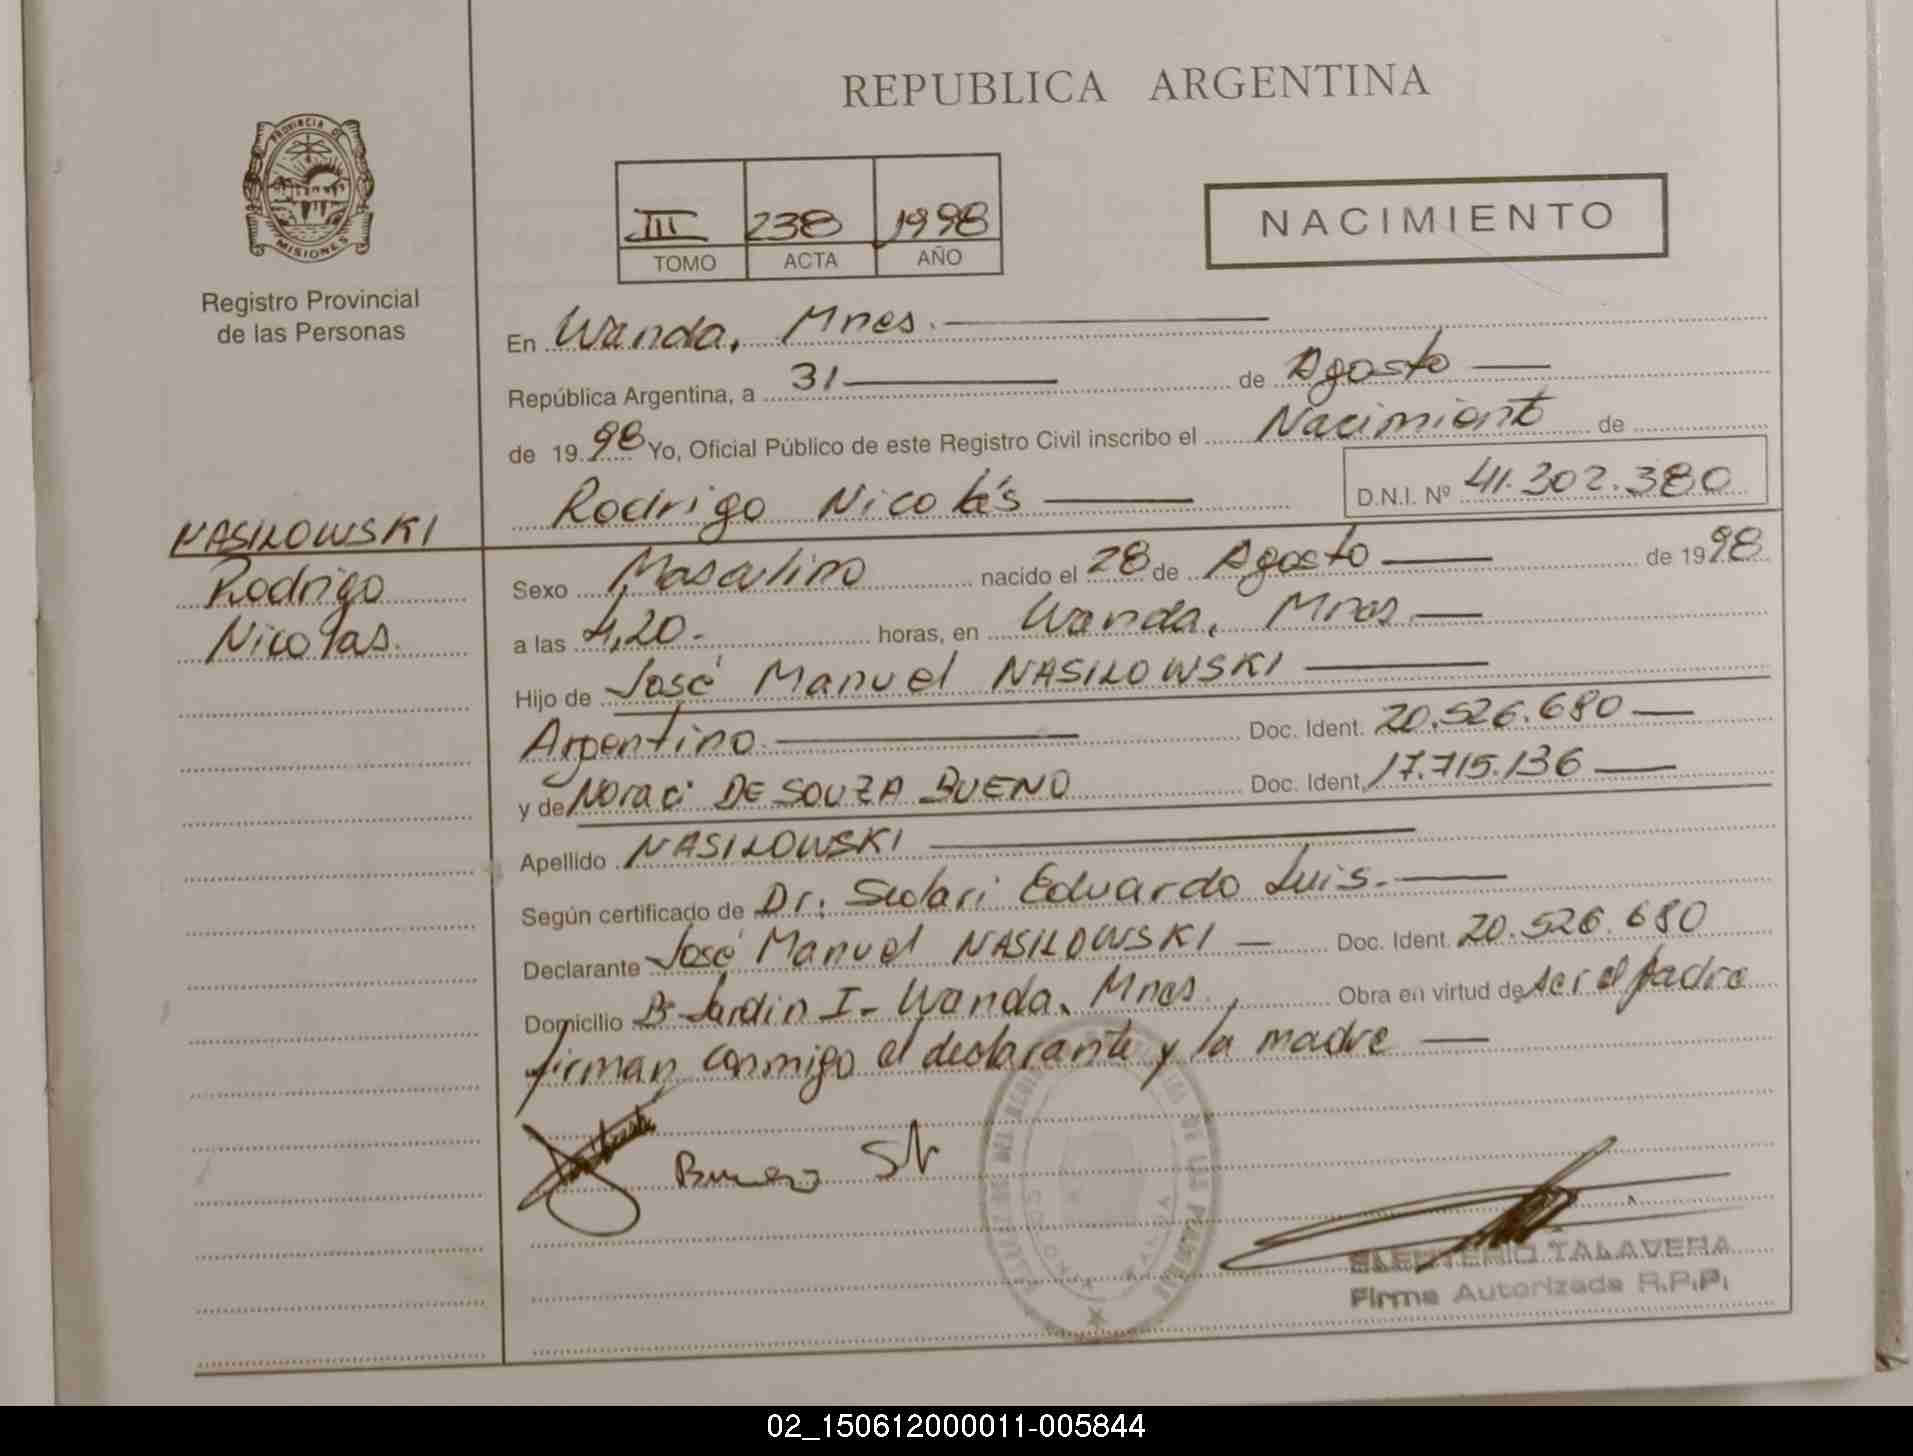 REPUBLICA ARGENTINA
PROVINCIA DE
MISIONES
Registro Provincial
de las Personas
III 238 1998
TOMO ACTA AÑO
NACIMIENTO
En Wanda, Mnes.
República Argentina, a 31 de Agosto
de 1998 Yo, Oficial Público de este Registro Civil inscribo el Nacimiento de
Rodrigo Nicolás D.N.I. Nº 41.302.380
NASILOWSKI
Rodrigo
Nicolas.
Sexo Masculino nacido el 28 de Agosto de 1998
a las 4,20. horas, en Wanda, Mnes
Hijo de José Manuel NASILOWSKI
Argentino. Doc. Ident. 20.526.680
y de Noraci DE SOUZA BUENO Doc. Ident. 17.715.136
Apellido NASILOWSKI
Según certificado de Dr. Eduardo Luis.
Declarante José Manuel NASILOWSKI Doc. Ident. 20.526.680
Domicilio Bº Jardin I - Wanda, Mnes. Obra en virtud de ser el padre
firman conmigo el declarante y la madre
Bueno
ELEUTERIO TALAVERA
Firma Autorizada R.P.P.
02_150612000011-005844